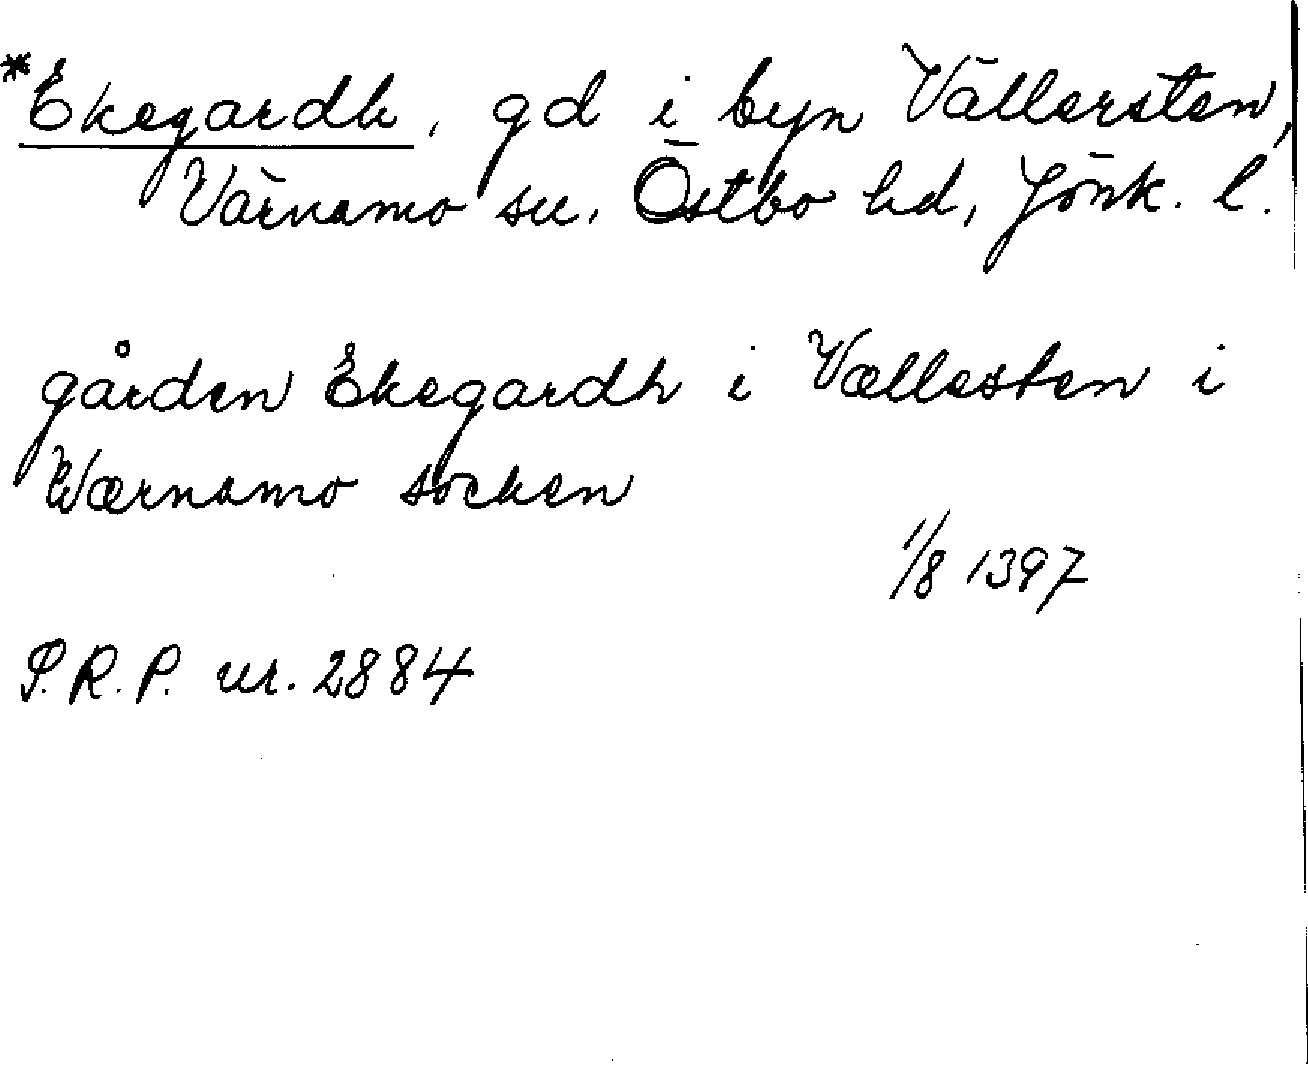 *Ekegardh, gd i byn Vällersten,
Värnamo sn, Östbo hd, Jönk. l.
gården Ekegardh i Vællesten i
Wærnamo socken
1/8 1397
S.R.P. nr. 2884